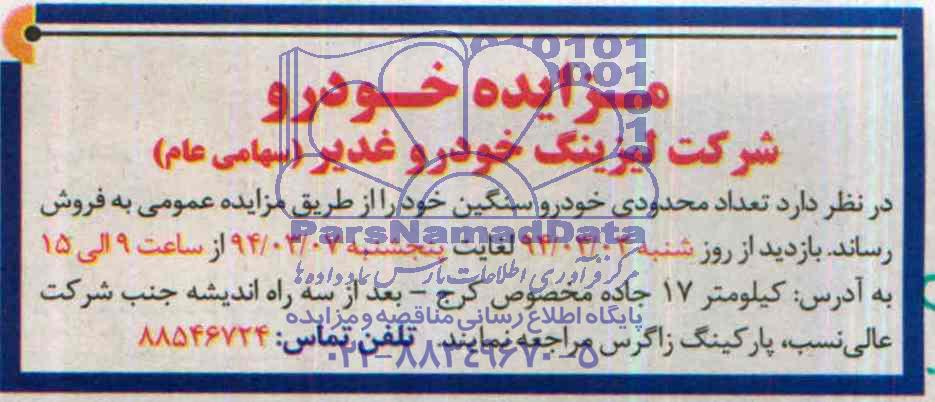 مزایده خودرو
شرکت لیزینگ خودرو غدیر (سهامی عام)
در نظر دارد تعداد محدودی خودرو سنگین خود را از طریق مزایده عمومی به فروش
رساند. بازدید از روز شنبه ۹۴/۰۳/۰۲ لغایت پنجشنبه ۹۴/۰۳/۰۷ از ساعت ۹ الی ۱۵
به آدرس: کیلومتر ۱۷ جاده مخصوص کرج – بعد از سه راه اندیشه جنب شرکت
عالی‌نسب، پارکینگ زاگرس مراجعه نمایند. تلفن تماس: ۸۸۵۴۶۷۲۴
ParsNamadData
مرکز فرآوری اطلاعات پارس نماد داده ها
پایگاه اطلاع رسانی مناقصه و مزایده
۰۲۱-۸۸۳۴۹۶۷۰-۵